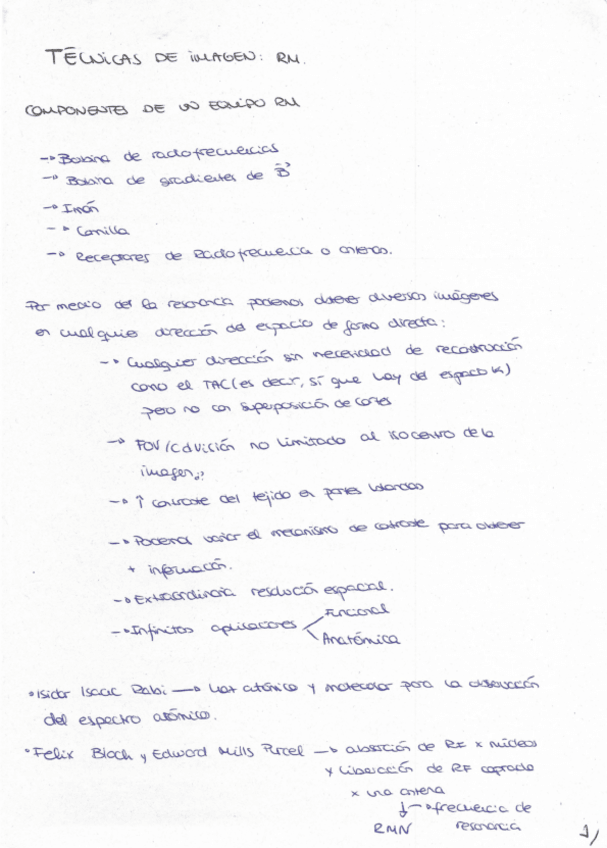 TÉCNICAS DE IMAGEN: RM.
COMPONENTES DE UN EQUIPO RM
→ Bobina de radiofrecuencias
→ Bobina de gradientes de B⃗
→ Imán
→ Camilla
→ Receptores de Radiofrecuencia o antenas.
Por medio del la resonancia podemos obtener diversos imágenes
en cualquier dirección del espacio de forma directa:
→ Cualquier dirección sin necesidad de reconstrucción
como el TAC (es decir, sí que hay del espacio K)
pero no con superposición de cortes
→ FOV / Cdvisión no limitado al isocentro de la
imagen
→ ↑ contraste del tejido en partes blandas
→ Podemos variar el mecanismo de contraste para obtener
+ información.
→ Extraordinaria resolución espacial.
→ Infinitas aplicaciones Funcional
Anatómica
• Isidor Isaac Rabi → haz atómico y molecular para la observación
del espectro atómico.
• Felix Bloch y Edward Mills Purcel → absorción de RF x núcleos
y liberación de RF captada
x una antena
↓ → frecuencia de
RMN resonancia
1/